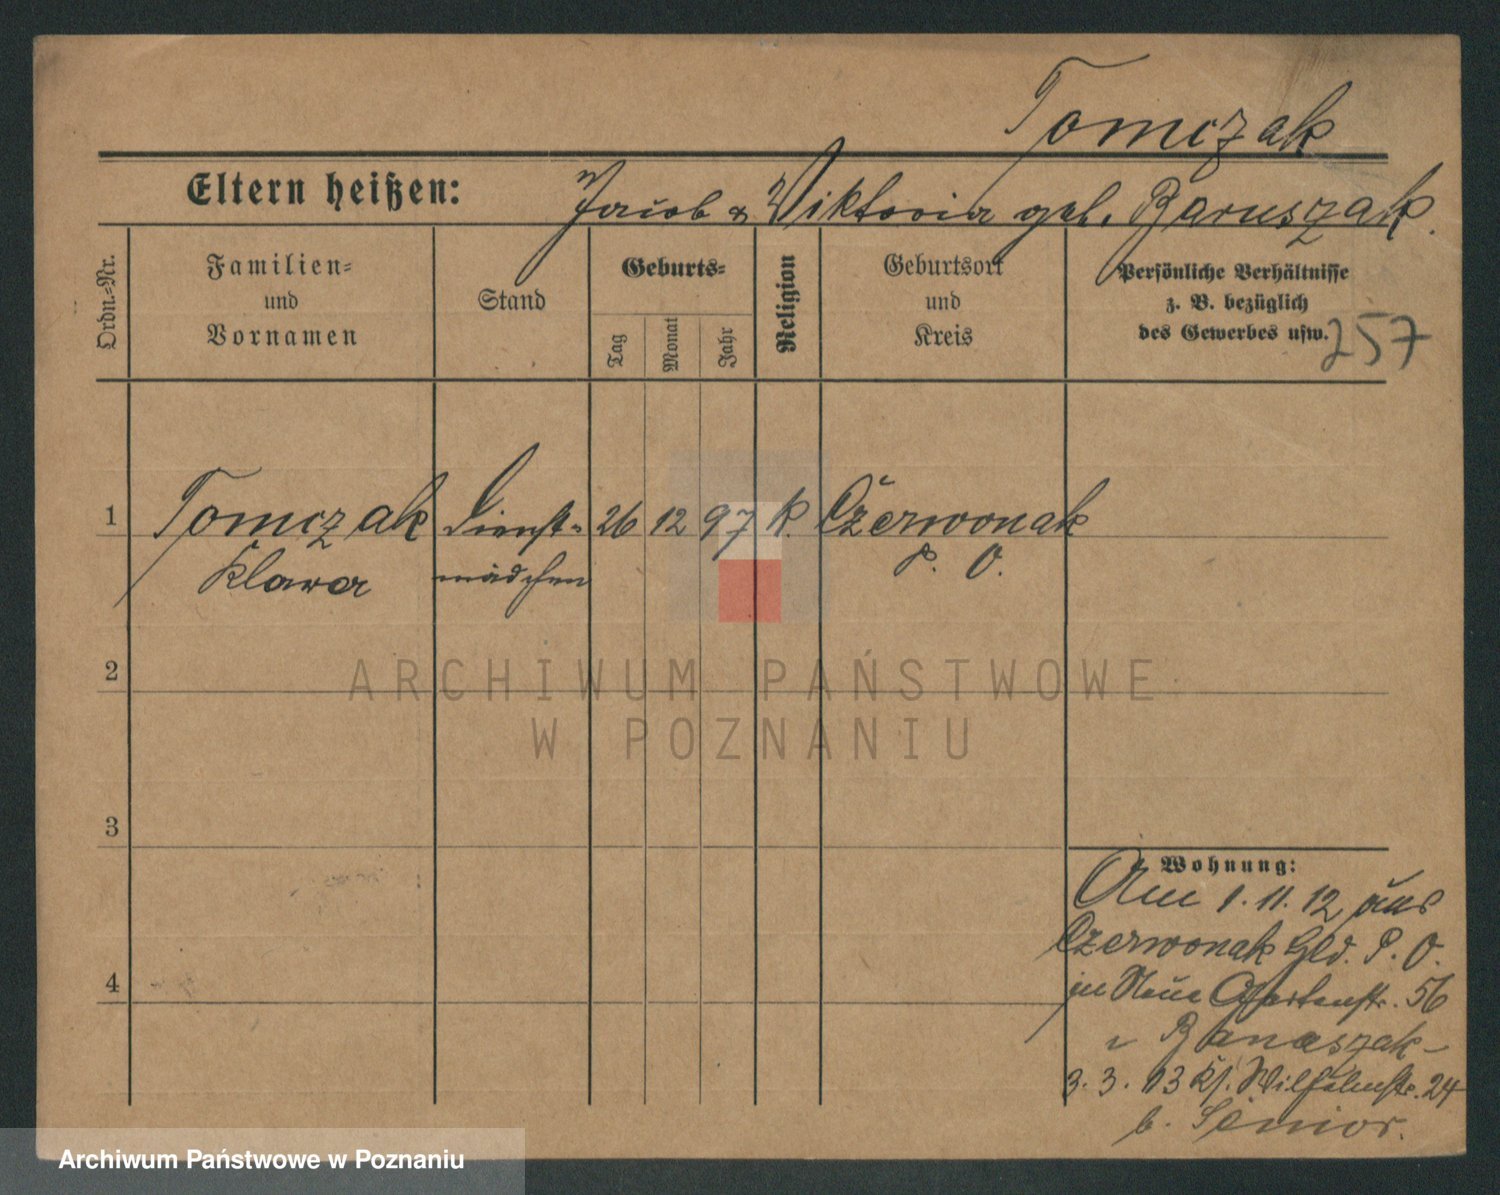 Tomczak
Eltern heißen: Jacob & Viktoria geb. Baruszak.
Ordn.-Nr.
Familien-
und
Vornamen
Stand
Geburts-
Tag
Monat
Jahr
Religion
Geburtsort
und
Kreis
Persönliche Verhältnisse
z. B. bezüglich
des Gewerbes usw.
257
1 Tomczak Dienst- 26 12 97 K. Czerwonak
Klara mädchen P. O.
2
ARCHIWUM PAŃSTWOWE
W POZNANIU
3
4
Wohnung:
1.11.12 aus
Czerwonak P. O.
Neue Gartenstr. 56
Banaszak
3.3.13 Kl. Wilhelmstr. 24
b. Senior.
Archiwum Państwowe w Poznaniu